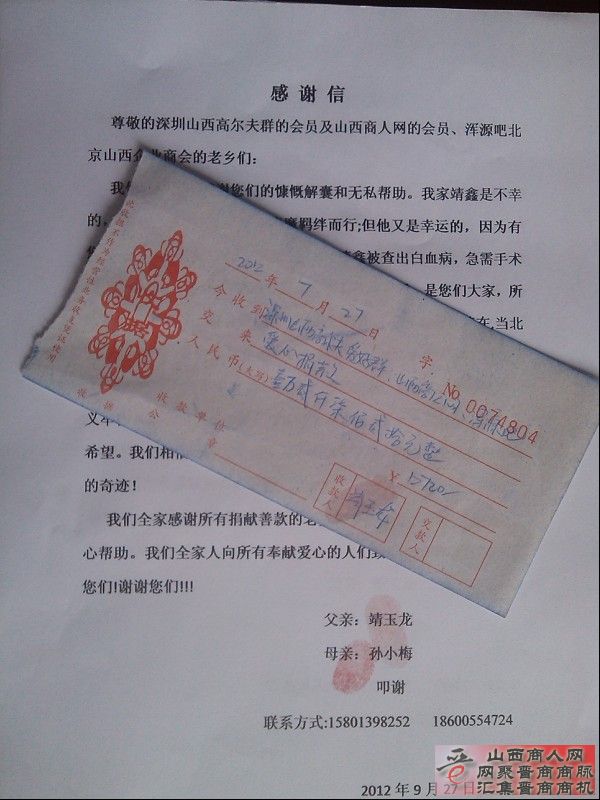 感谢信
尊敬的深圳山西高尔夫群的会员及山西商人网的会员、浑源吧北
京山西企业商会的老乡们：
您们的慷慨解囊和无私帮助。我家靖鑫是不幸
的，
羁绊而行;但他又是幸运的，因为有
鑫被查出白血病，急需手术
是您们大家，所
在,当北
希望。我们相
的奇迹！
我们全家感谢所有捐献善款的老
心帮助。我们全家人向所有奉献爱心的人们
您们!谢谢您们!!!
父亲：靖玉龙
母亲：孙小梅
叩谢
联系方式:15801398252 18600554724
2012 年 9 月 27 日
2012年 7月 27日
字：No 0074804
今收到
交来 爱心捐款
人民币(大写) 壹万 贰仟柒佰贰拾元整
收款单位
公章
收据
收款人
交款人
山西商人网
网聚晋商商脉
汇集晋商商机